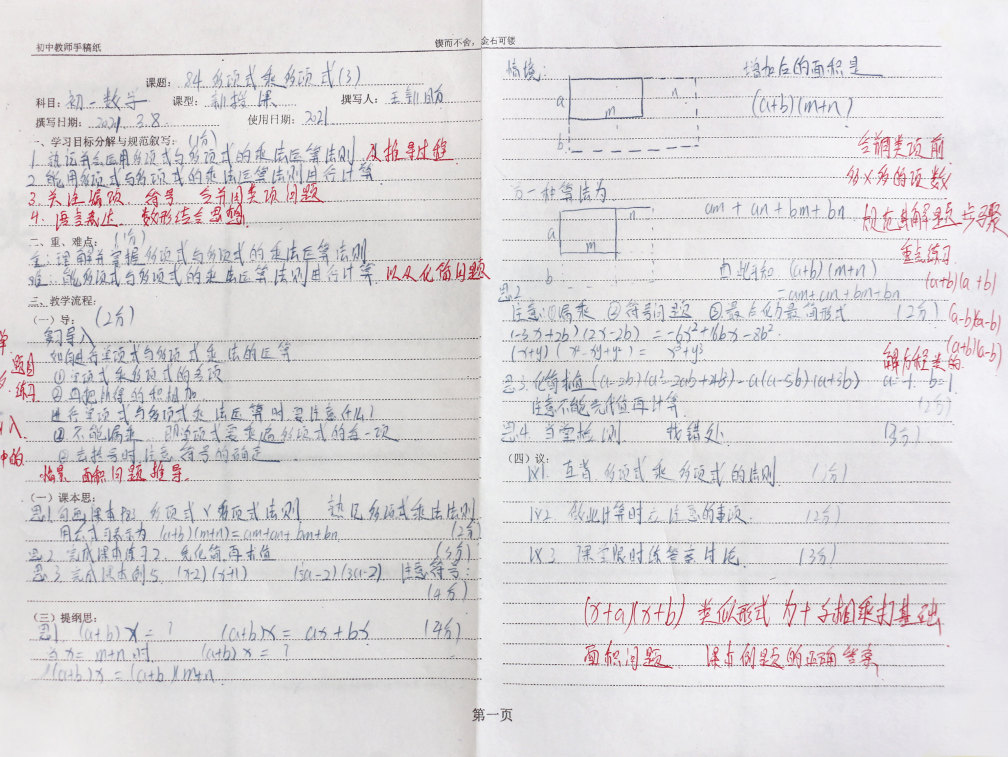 初中教师手稿纸
锲而不舍，金石可镂
课题： 8.4 多项式乘多项式(3)
科目：初一数学 课型：新授课 撰写人：
撰写日期：2021. 3.8 使用日期：2021
一、学习目标分解与规范叙写：(1分)
1. 多项式与多项式的乘法运算法则 及推导过程
2. 能用多项式与多项式的乘法运算法则进行计算
3. 关注漏项、符号、合并同类项问题
4. 语言表达、数形结合思想
二、重、难点： (1分)
重：理解并掌握多项式与多项式的乘法运算法则
难：能多项式与多项式的乘法运算法则进行计算 以及化简问题
三、教学流程：
(一)导： (2分)
复习导入
如何进行单项式与多项式乘法的运算
① 单项式乘多项式的各项
② 再把所得的积相加
进行单项式与多项式乘法运算时要注意什么
① 不能漏乘 即单项式要乘遍多项式的每一项
② 去括号时注意符号的确定
题目
练习
入
中的
情景 面积问题推导
(一)课本思：
思1 勾画课本P 多项式×多项式法则 熟记多项式乘法法则
用公式可表示为 (a+b)(m+n)=am+an+bm+bn (2分)
思2 完成课本练习2 先化简再求值 (3分)
思3 完成课本例5 (x-2)(x+1) (3a-2) 注意符号：
(4分)
(三)提纲思：
思1 (a+b)X = ? (a+b)X = ax+bx (4分)
当x=m+n时 (a+b)x = ?
(a+b)x = (a+b)(m+n
情境：
a
m
n
b
增加后的面积是
(a+b)(m+n)
合并同类项前
多×多的项数
另一种算法为
am+an+bm+bn
规范其解题步骤
a
m
n
b
重点练习
由此可知 (a+b)(m+n)
=am+an+bm+bn
(a+b)(a+b)
(a-b)(a-b)
(a+b)(a-b)
思2
注意：①漏乘 ②符号问题 ③最后化为最简形式 (2分)
(-3x+2b)(2x-2b) = -6x²+ bx-8b²
(x+y)(x²-xy+y²) = x³+y³
解方程类的
思3 化简求值 (a-2b)(a²-2ab+4b)-a(a-5b)(a+3b) a=-1 b=1
注意不能先代值再计算 (2分)
思4 当堂检测 找错处 (3分)
(四)议：
议1 互背多项式乘多项式的法则 (1分)
议2 做此计算时应注意的事项 (2分)
议3 课堂限时练答案讨论 (3分)
(x+a)(x+b) 类似形式 为十字相乘打基础
面积问题 课本例题的正确答案
第一页